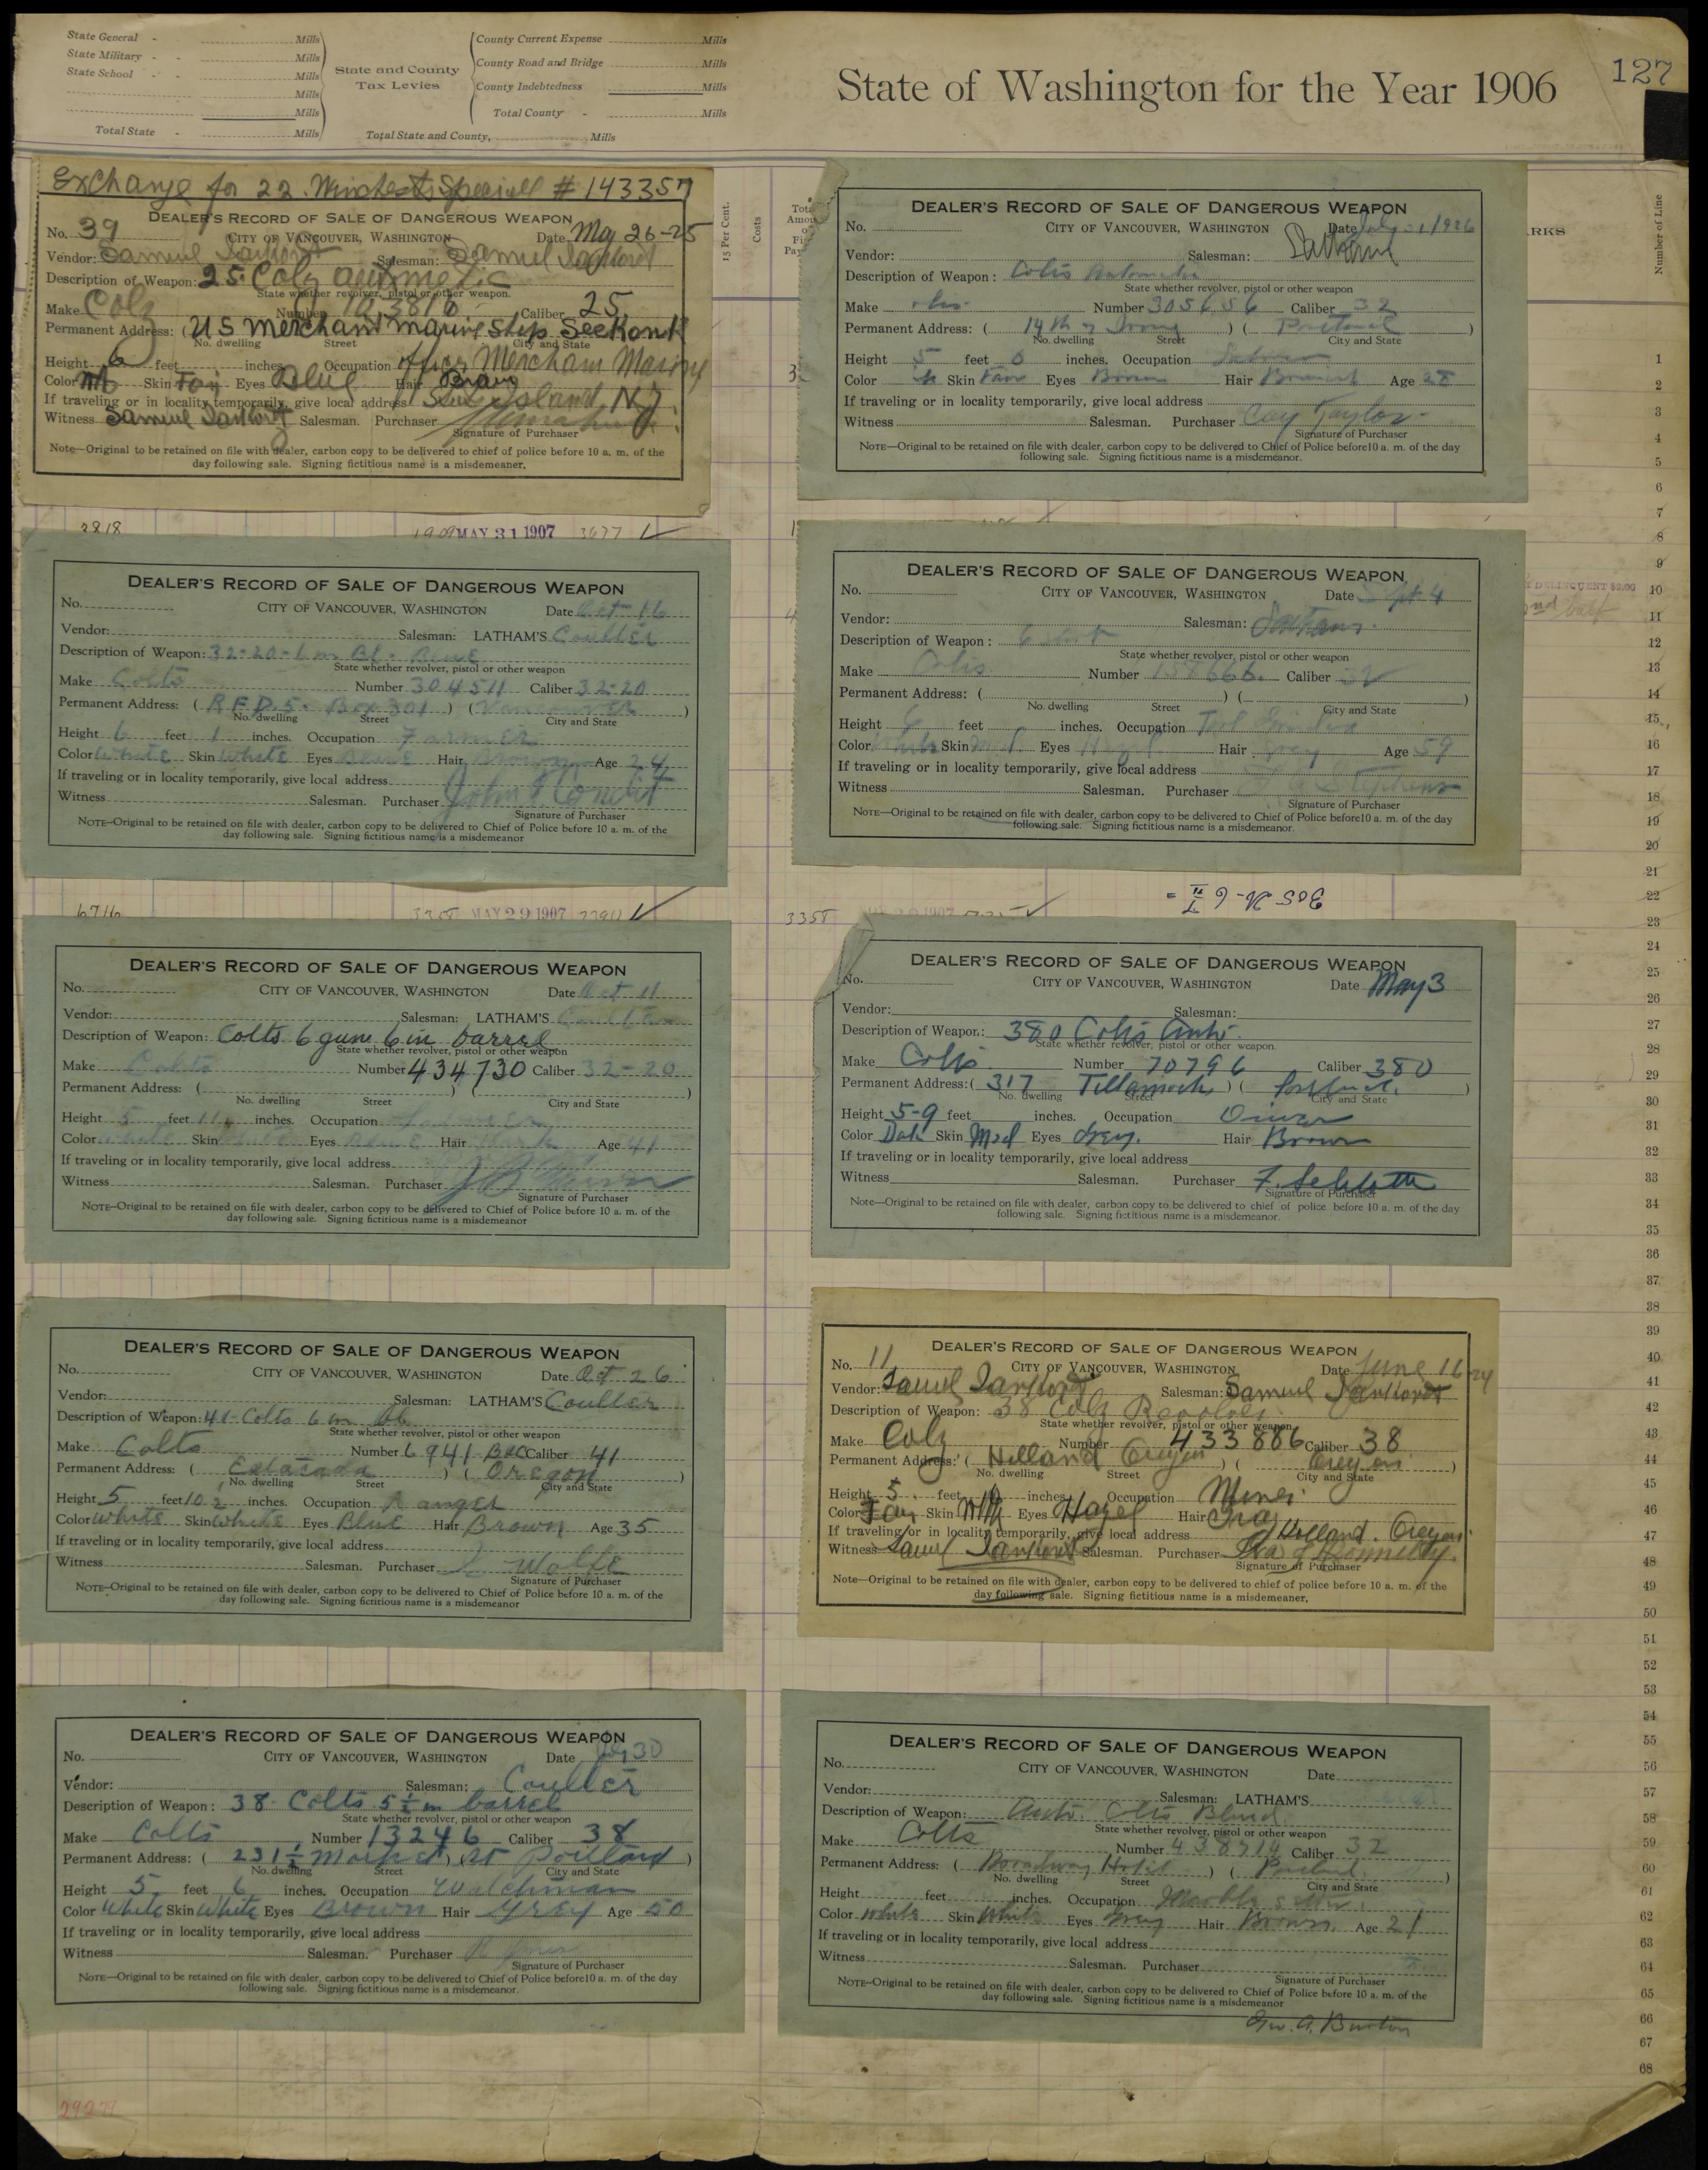 State General - Mills
State Military - - Mills
State School - - Mills
Mills
Mills
Total State - Mills
State and County
Tax Levies
County Current Expense Mills
County Road and Bridge Mills
County Indebtedness Mills
Total County - Mills
Total State and County, Mills
State of Washington for the Year 1906
127
15 Per Cent.
Costs
Number of Line
Exchange for 22. Winchester Speciall # 143357
DEALER'S RECORD OF SALE OF DANGEROUS WEAPON
No. 39 CITY OF VANCOUVER, WASHINGTON Date May 26-25
Vendor: Samuel Salesman: Samuel
Description of Weapon: 25. Colz autmetic
State whether revolver, pistol or other weapon.
Make Colz Number 103816 Caliber 25
Permanent Address: (U S Merchant Marine Ship Seekonk
No. dwelling Street City and State
Height 6 feet inches. Occupation Mercham Marine
Color Wh Skin Fai Eyes Blue Hair Braun
If traveling or in locality temporarily, give local address Island. N J.
Witness Samuel Salesman. Purchaser
Signature of Purchaser
Note—Original to be retained on file with dealer, carbon copy to be delivered to chief of police before 10 a. m. of the
day following sale. Signing fictitious name is a misdemeaner.
3818 1909 MAY 31 1907 3677
DEALER'S RECORD OF SALE OF DANGEROUS WEAPON
No. CITY OF VANCOUVER, WASHINGTON Date Oct 16
Vendor: Salesman: LATHAM'S Coulter
Description of Weapon: 32-20-6 in Bl. Blue
State whether revolver, pistol or other weapon
Make Colts Number 304511 Caliber 32-20
Permanent Address: (R.F.D. 5. Box 301) (Vancouver)
No. dwelling Street City and State
Height 6 feet 1 inches. Occupation Farmer
Color White Skin White Eyes Blue Hair Brown Age 24
If traveling or in locality temporarily, give local address
Witness Salesman. Purchaser John Condit
Signature of Purchaser
NOTE—Original to be retained on file with dealer, carbon copy to be delivered to Chief of Police before 10 a. m. of the
day following sale. Signing fictitious name is a misdemeanor
6716 3358 MAY 29 1907
DEALER'S RECORD OF SALE OF DANGEROUS WEAPON
No. CITY OF VANCOUVER, WASHINGTON Date Oct 11
Vendor: Salesman: LATHAM'S Coulter
Description of Weapon: Colts 6 gun 6 in barrel
State whether revolver, pistol or other weapon
Make Colts Number 434730 Caliber 32-20
Permanent Address: ( ) ( )
No. dwelling Street City and State
Height 5 feet 11 inches. Occupation
Color White Skin White Eyes Blue Hair Dark Age 41
If traveling or in locality temporarily, give local address
Witness Salesman. Purchaser
Signature of Purchaser
NOTE—Original to be retained on file with dealer, carbon copy to be delivered to Chief of Police before 10 a. m. of the
day following sale. Signing fictitious name is a misdemeanor
DEALER'S RECORD OF SALE OF DANGEROUS WEAPON
No. CITY OF VANCOUVER, WASHINGTON Date Oct 26
Vendor: Salesman: LATHAM'S Coulter
Description of Weapon: 41-Colts 6 in bb
State whether revolver, pistol or other weapon
Make Colts Number 6941 Caliber 41
Permanent Address: (Estacada) (Oregon)
No. dwelling Street City and State
Height 5 feet 10 ½ inches. Occupation Ranger
Color White Skin White Eyes Blue Hair Brown Age 35
If traveling or in locality temporarily, give local address
Witness Salesman. Purchaser Wolfe
Signature of Purchaser
NOTE—Original to be retained on file with dealer, carbon copy to be delivered to Chief of Police before 10 a. m. of the
day following sale. Signing fictitious name is a misdemeanor
DEALER'S RECORD OF SALE OF DANGEROUS WEAPON
No. CITY OF VANCOUVER, WASHINGTON Date 30
Vendor: Salesman: Coulter
Description of Weapon: 38 Colts 5 ½ in barrel
State whether revolver, pistol or other weapon
Make Colts Number 13246 Caliber 38
Permanent Address: (231 ½ Market) (St Portland)
No. dwelling Street City and State
Height 5 feet 6 inches. Occupation Watchman
Color White Skin White Eyes Brown Hair Grey Age 50
If traveling or in locality temporarily, give local address
Witness Salesman. Purchaser
Signature of Purchaser
NOTE—Original to be retained on file with dealer, carbon copy to be delivered to Chief of Police before 10 a. m. of the day
following sale. Signing fictitious name is a misdemeanor.
29279
DEALER'S RECORD OF SALE OF DANGEROUS WEAPON
No. CITY OF VANCOUVER, WASHINGTON Date July 1926
Vendor: Salesman: Latham
Description of Weapon: Colts Automatic
State whether revolver, pistol or other weapon
Make Number 305656 Caliber 32
Permanent Address: (14th & Irving) (Portland)
No. dwelling Street City and State
Height 5 feet 8 inches. Occupation
Color Skin Fair Eyes Brown Hair Age 28
If traveling or in locality temporarily, give local address
Witness Salesman. Purchaser Taylor
Signature of Purchaser
NOTE—Original to be retained on file with dealer, carbon copy to be delivered to Chief of Police before 10 a. m. of the day
following sale. Signing fictitious name is a misdemeanor.
DEALER'S RECORD OF SALE OF DANGEROUS WEAPON
No. CITY OF VANCOUVER, WASHINGTON Date Sept 4
Vendor: Salesman: Latham
Description of Weapon:
State whether revolver, pistol or other weapon
Make Colts Number 158666. Caliber 32
Permanent Address: ( ) ( )
No. dwelling Street City and State
Height 6 feet inches. Occupation Tool Grinder
Color White Skin Med Eyes Hazel Hair Grey Age 59
If traveling or in locality temporarily, give local address
Witness Salesman. Purchaser Stephens
Signature of Purchaser
NOTE—Original to be retained on file with dealer, carbon copy to be delivered to Chief of Police before 10 a. m. of the day
following sale. Signing fictitious name is a misdemeanor.
3355
DEALER'S RECORD OF SALE OF DANGEROUS WEAPON
No. CITY OF VANCOUVER, WASHINGTON Date May 3
Vendor: Salesman:
Description of Weapon: 380 Colts Auto.
State whether revolver, pistol or other weapon.
Make Colts Number 70796 Caliber 380
Permanent Address: (317 Tillamook) (Portland.)
No. dwelling Street City and State
Height 5-9 feet inches. Occupation Driver
Color Dark Skin Med Eyes Grey. Hair Brown
If traveling or in locality temporarily, give local address
Witness Salesman. Purchaser F. Schlotte
Signature of Purchaser
Note—Original to be retained on file with dealer, carbon copy to be delivered to chief of police before 10 a. m. of the day
following sale. Signing fictitious name is a misdemeanor.
DEALER'S RECORD OF SALE OF DANGEROUS WEAPON
No. 11 CITY OF VANCOUVER, WASHINGTON Date June 16-24
Vendor: Samuel Salesman: Samuel
Description of Weapon: 38 Colz Revolver
State whether revolver, pistol or other weapon.
Make Colz Number 433886 Caliber 38
Permanent Address: (Holland Oregon) (Oregon)
No. dwelling Street City and State
Height 5. feet inches Occupation Miner
Color Fair Skin Wh Eyes Hazel Hair Gray
If traveling or in locality temporarily, give local address Holland. Oregon
Witness Samuel Salesman. Purchaser Ira
Signature of Purchaser
Note—Original to be retained on file with dealer, carbon copy to be delivered to chief of police before 10 a. m. of the
day following sale. Signing fictitious name is a misdemeaner.
DEALER'S RECORD OF SALE OF DANGEROUS WEAPON
No. CITY OF VANCOUVER, WASHINGTON Date
Vendor: Salesman: LATHAM'S
Description of Weapon: Auto. Colts Blued
State whether revolver, pistol or other weapon
Make Colts Number 438914 Caliber 32
Permanent Address: (Broadway Hotel) (Portland.)
No. dwelling Street City and State
Height feet inches. Occupation Marble setter.
Color White Skin White Eyes Grey Hair Brown. Age 21
If traveling or in locality temporarily, give local address
Witness Salesman. Purchaser
Signature of Purchaser
NOTE—Original to be retained on file with dealer, carbon copy to be delivered to Chief of Police before 10 a. m. of the
day following sale. Signing fictitious name is a misdemeanor
Geo. A. Burton
1
2
3
4
5
6
7
8
9
10
11
12
13
14
15
16
17
18
19
20
21
22
23
24
25
26
27
28
29
30
31
32
33
34
35
36
37
38
39
40
41
42
43
44
45
46
47
48
49
50
51
52
53
54
55
56
57
58
59
60
61
62
63
64
65
66
67
68